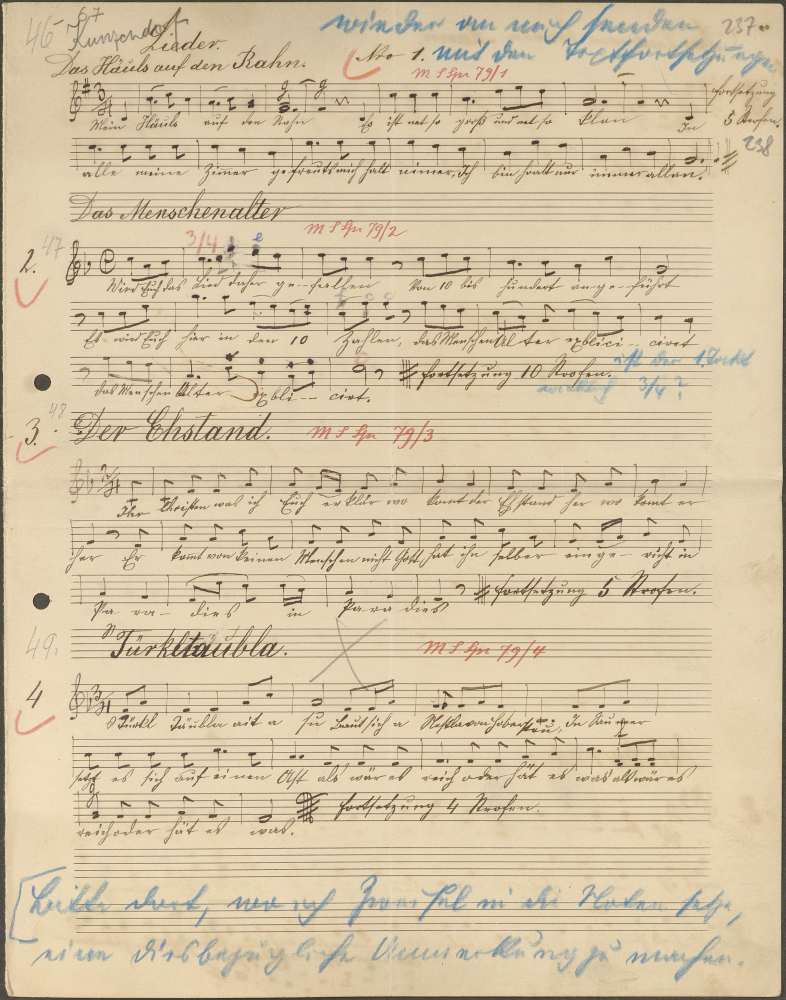 46 57 Kunzendorf wieder an mich senden 237
Lieder. Nro 1. mit den Textfortsetzungen
Das Häuls auf den Rahn. M S Gn 79/1
Fortsetzung
Mein Häuls auf den Rahn Es ist net so groß und net so klan In 3 Strofen.
238
alle meine Zimer gefreuts mich halt nimer, Ich bin halt nur immer allan.
Das Menschenalter M S Gn 79/2
47
2. 3/4 e
Wird Euch das Lied daher ge-halten Von 10 bis hundert an-ge-führt
Es wird Euch hier in den 10 Zahlen, das Menschenalter explici-- ciret
das Menschenalter expli-- cirt. Fortsetzung 10 Strofen. ist der 1. Takt
wirklich 3/4?
48
3. Der Ehstand. M S Gn 79/3
Ihr Christen was ich Euch erklär wo komt der Ehstand her wo komt er
her Er komt von keinen Menschen nicht Gott hat ihn selber einge- richt in
Pa-ra- dies in Paradies Fortsetzung 5 Strofen.
49. 's Türkltäubla. M S Gn 79/4
4
's Türkl Täubla ait a su Laut sich a Nestla von Haberstru, In Summer
setzt es sich auf einen Ast als wär es reich oder hät es was als wär es
reich oder hät es was. Fortsetzung 4 Strofen.
Bitte dort, wo ich Zweifel in die Noten setze,
eine diesbezügliche Anmerkung zu machen.